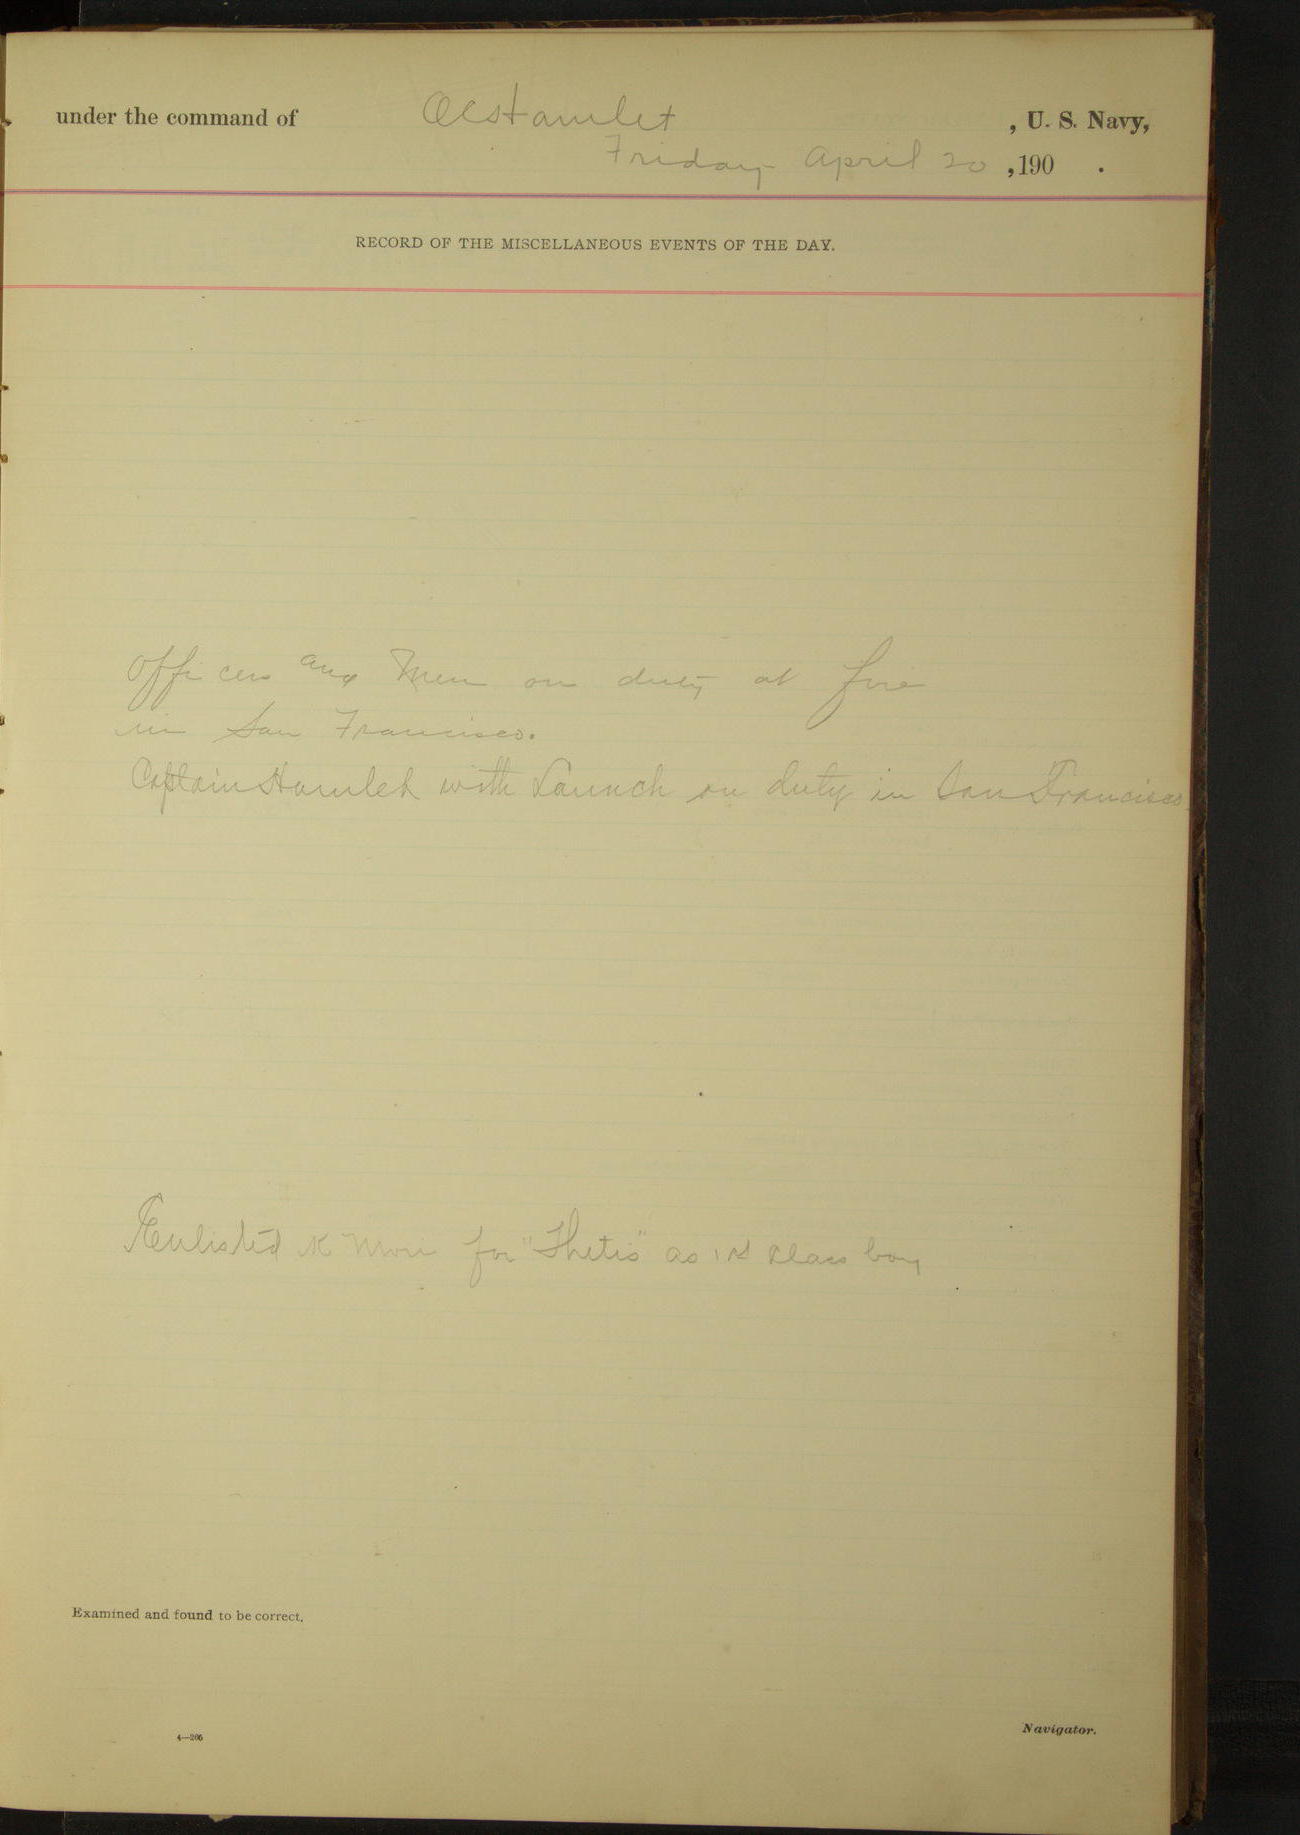 under the command of OCS Hamlet , U. S. Navy,
Friday April 20 , 190 .
RECORD OF THE MISCELLANEOUS EVENTS OF THE DAY.
Officers and Men on duty at fire
in San Francisco.
Captain Hamlet with Launch on duty in San Francisco
Enlisted K Mori for "Thetis" as 1st Class boy
Examined and found to be correct.
4—265
Navigator.